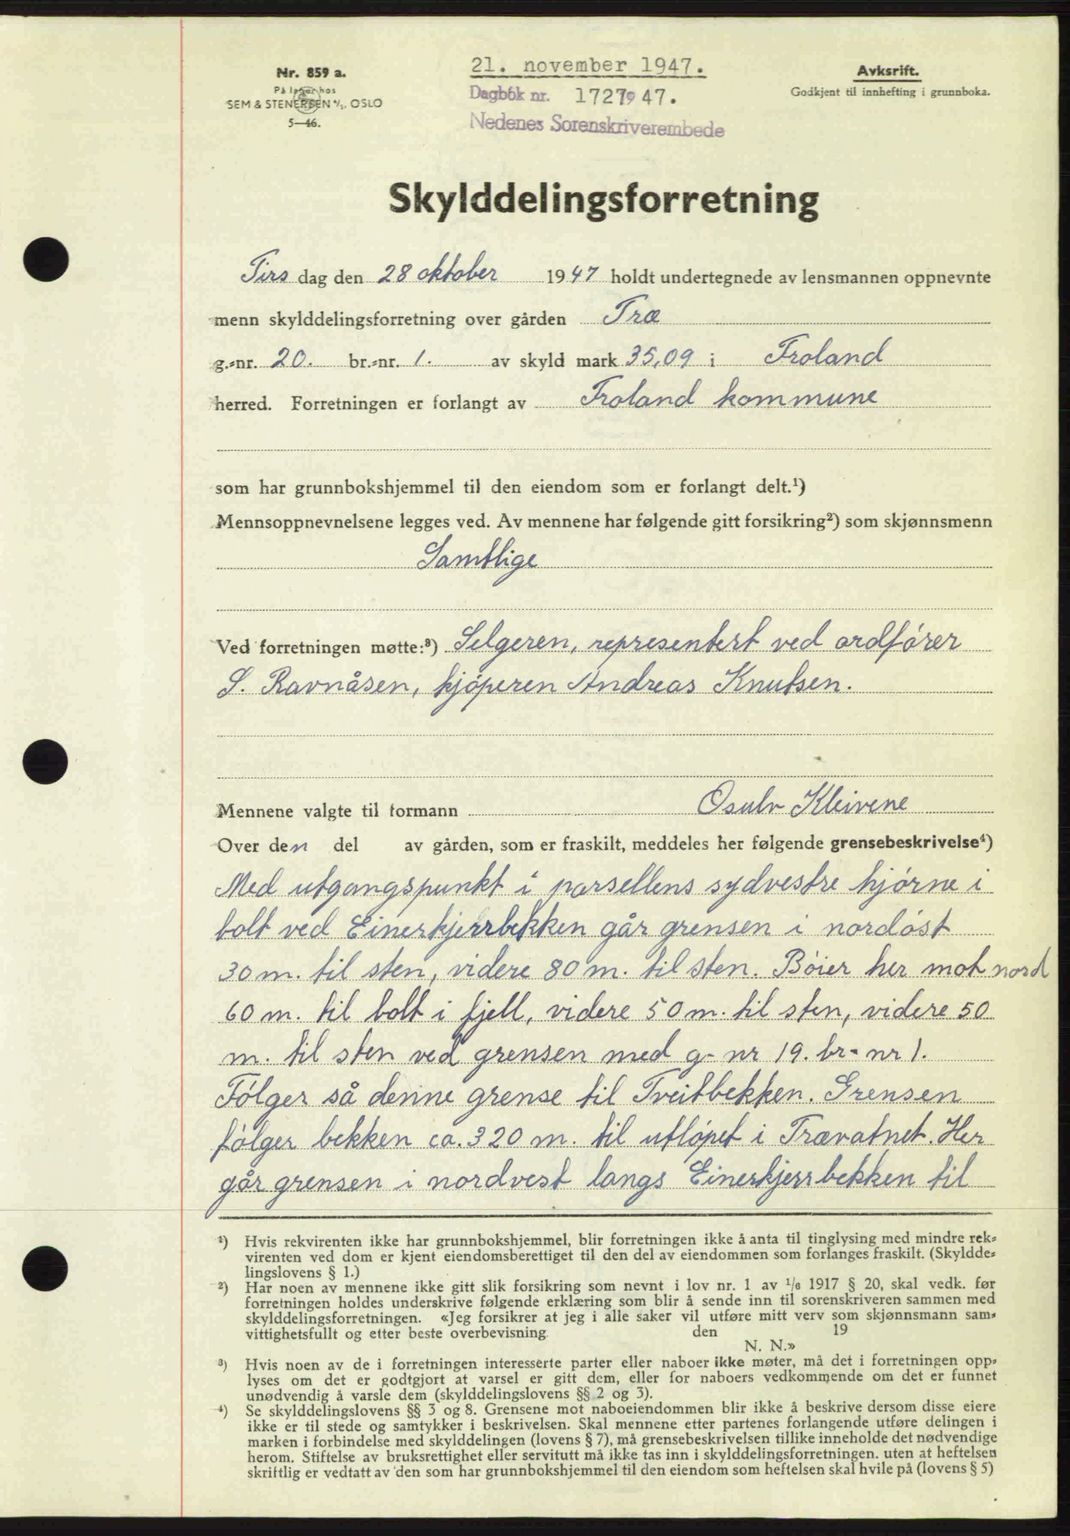 Nr. 859 a.
På lager hos
SEM & STENERSEN A/S, OSLO
5—46.
21. november 1947.
Dagbok nr. 1727 1947.
Nedenes Sorenskriverembede
Avksrift.
Godkjent til innhefting i grunnboka.
Skylddelingsforretning
Tirs dag den 28 oktober 1947 holdt undertegnede av lensmannen oppnevnte
menn skylddelingsforretning over gården Træ
g.-nr. 20. br.-nr. 1. av skyld mark 35,09 i Froland
herred. Forretningen er forlangt av Froland kommune
som har grunnbokshjemmel til den eiendom som er forlangt delt.¹)
Mennsoppnevnelsene legges ved. Av mennene har følgende gitt forsikring²) som skjønnsmenn
Samtlige
Ved forretningen møtte:³) Selgeren, representert ved ordfører
S. Ravnåsen, kjøperen Andreas Knutsen.
Mennene valgte til formann Osulv Kleivene
Over den del av gården, som er fraskilt, meddeles her følgende grensebeskrivelse⁴)
Med utgangspunkt i parsellens sydvestre hjørne i
bolt ved Einerkjerrbekken går grensen i nordøst
30 m. til sten, videre 80 m. til sten. Bøier her mot nord
60 m. til bolt i fjell, videre 50 m. til sten, videre 50
m. til sten ved grensen med g- nr 19. br- nr 1.
Følger så denne grense til Tveitbekken. Grensen
følger bekken ca. 320 m. til utløpet i Trævatnet. Her
går grensen i nordvest langs Einerkjerrbekken til
¹) Hvis rekvirenten ikke har grunnbokshjemmel, blir forretningen ikke å anta til tinglysing med mindre rek-
virenten ved dom er kjent eiendomsberettiget til den del av eiendommen som forlanges fraskilt. (Skyldde-
lingslovens § 1.)
²) Har noen av mennene ikke gitt slik forsikring som nevnt i lov nr. 1 av 1/6 1917 § 20, skal vedk. før
forretningen holdes underskrive følgende erklæring som blir å sende inn til sorenskriveren sammen med
skylddelingsforretningen. «Jeg forsikrer at jeg i alle saker vil utføre mitt verv som skjønnsmann sam-
vittighetsfullt og etter beste overbevisning den 19
N. N.»
³) Hvis noen av de i forretningen interesserte parter eller naboer ikke møter, må det i forretningen opp-
lyses om det er godtgjort at varsel er gitt dem, eller for naboers vedkommende om det er funnet
unødvendig å varsle dem (skylddelingslovens §§ 2 og 3).
⁴) Se skylddelingslovens §§ 3 og 8. Grensene mot naboeiendommen blir ikke å beskrive dersom disse eiere
ikke er til stede og samtykker i beskrivelsen. Skal mennene etter partenes forlangende utføre delingen i
marken i forbindelse med skylddelingen (lovens § 7), må grensebeskrivelsen tillike inneholde det nødvendige
herom. Stiftelse av bruksrettighet eller servitutt må ikke tas inn i skylddelingsforretningen. uten at heftelsen
skriftlig er vedtatt av den som har grunnbokshjemmel til den eiendom som heftelsen skal hvile på (lovens § 5)